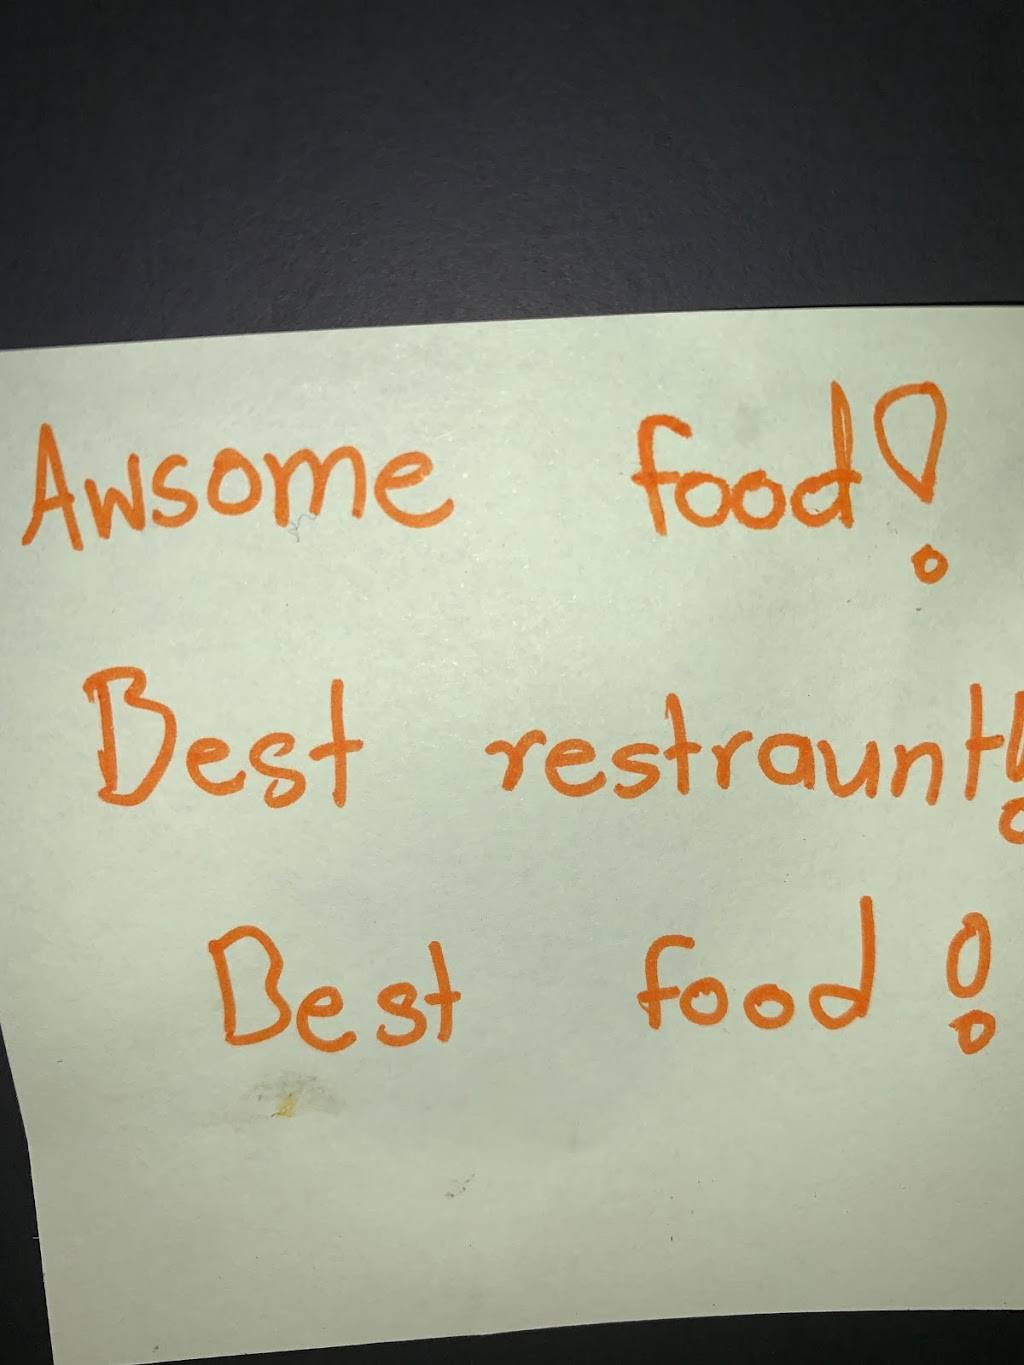 Awsome food!
Best restraunt!
Best food!